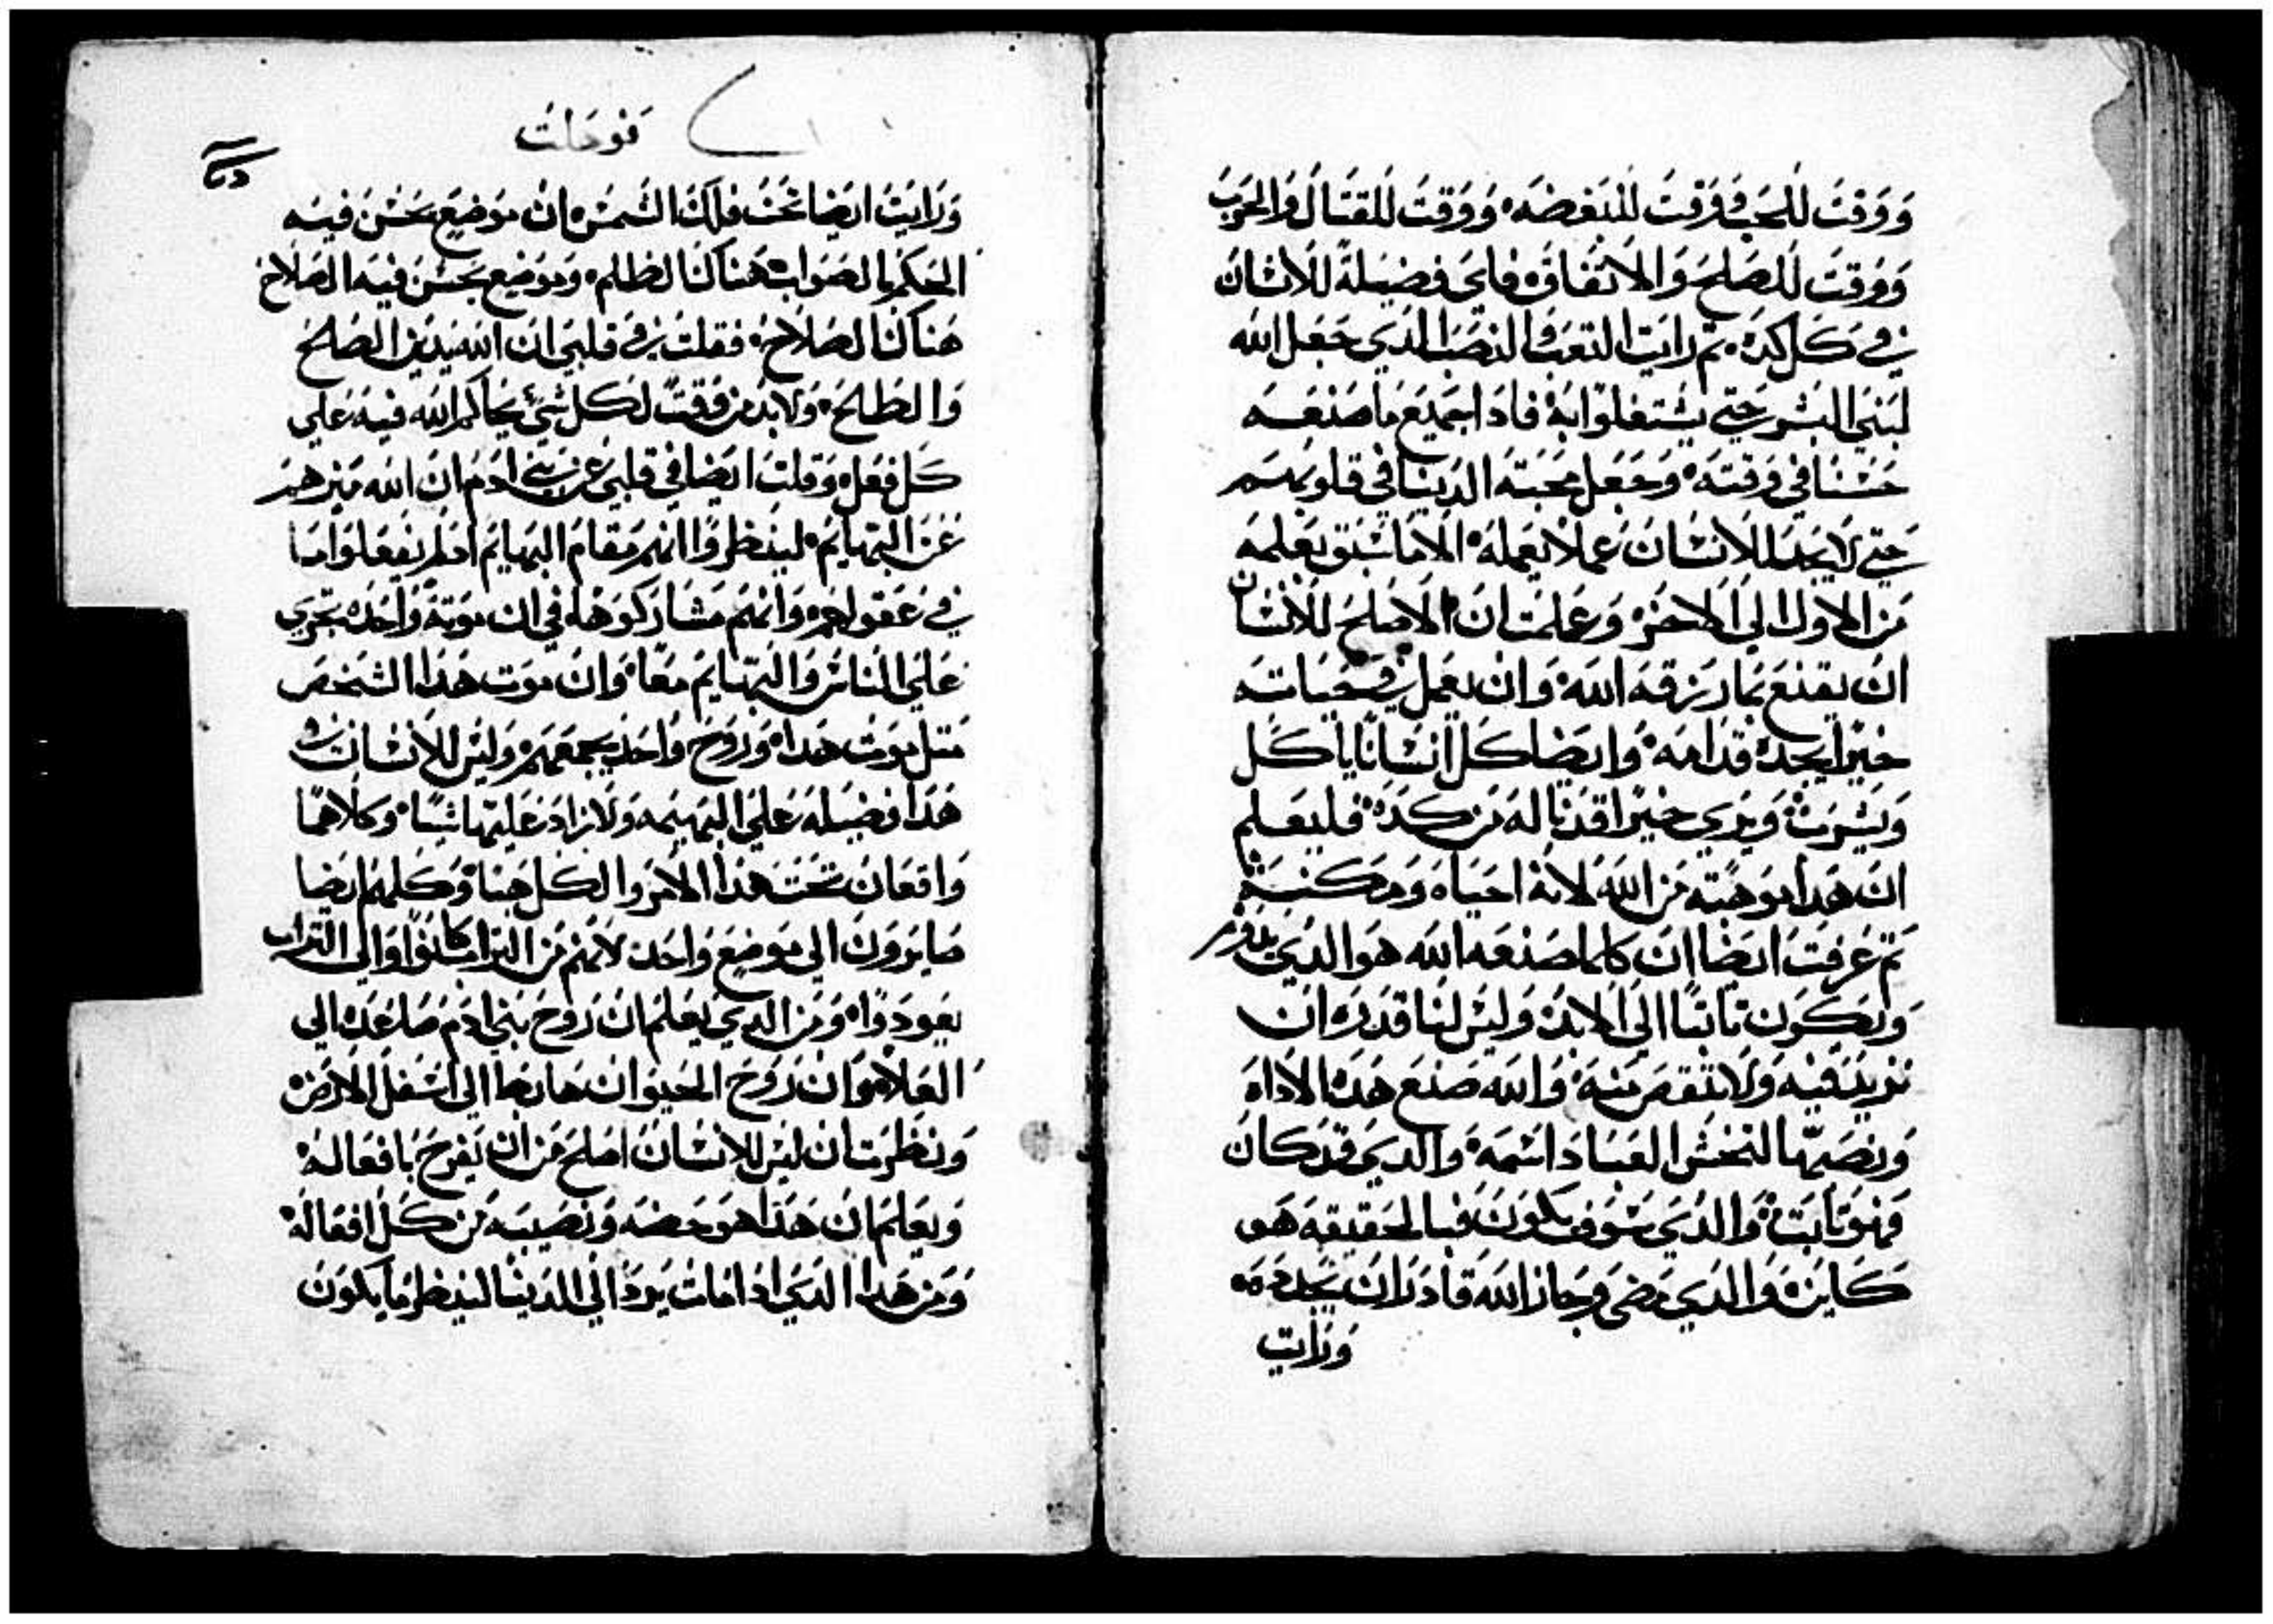 ووقت للحب ووقت للبغضه ووقت للقتال والحرب
ووقت للصلح والاتفاق فاي فضيلة للانسان
في كل كده ثم رايت التعب والنصب الذي جعل الله
لبني البشر حتي يشتغلوا به فاذا جميع ما صنعه
حسنا في وقته وجعل محبة الدنيا في قلوبهم
حتي لا يجد الانسان عملا يعمله الا ما سبق بعلمه
من الاول الي الاخر وعلمت ان الاصلح للانسان
ان يقنع بما رزقه الله وان يعمل في حياته
خيرا يجده قدامه وايضا كل انسانا ياكل
ويشرب ويري خيرا قد ناله من كده فليعلم
ان هدا موهبته من الله لانه احياه ومكنه
تم عرفت ايضا ان كلما صنعه الله هو الدي
ويكون تابتا الي الابد وليس لنا قدره ان
نزيد فيه ولا ننقص منه والله صنع هده الاداه
ونصبها لتخش العباد اسمه والدي قد كان
فهو تابت والدي سوف يكون فبالحقيقه هو
كاين والدي مضي وجاز الله قادرا ان يجدده
ورايت
قوهلت
ورايت ايضا تحت فلك الشمس ان موضع يحسن فيه
الحكم بالصواب هناك الظلم وموضع يحسن فيه الصلاح
هناك الصلاح فقلت في قلبي ان الله يدين الصلح
والطلح ولابد من وقت لكل شي يحاكم الله فيه علي
كل فعل وقلت ايضا في قلبي عن بني ادم ان الله ميزهم
عن البهايم لينظروا انهم مقام البهايم اذ لم يفعلوا ما
في عقولهم وانهم مشاركوها في ان موتة واحده تجري
علي الناس والبهايم معا وان موت هذا الشخص
متل موت هدا وروح واحد يجمعهم وليس للانسان في
هذا فضيله علي البهيمه ولا زاد عليها شيا وكلاهما
واقعان تحت هذا الامر والكل هبا وكلهم ايضا
صايرون الي موضع واحد لانهم من التراب كانوا والي التراب
يعودوا ومن الدي يعلم ان روح بني ادم صاعده الي
العلا وان روح الحيوان هابطا الي اسفل الارض
ونظرت ان ليس للانسان اصلح من ان يفرح بافعاله
ويعلم ان هذا هو حضه ونصيبه من كل افعاله
ومن هدا الدي اذا مات يرد الي الدنيا لينظر ما يكون